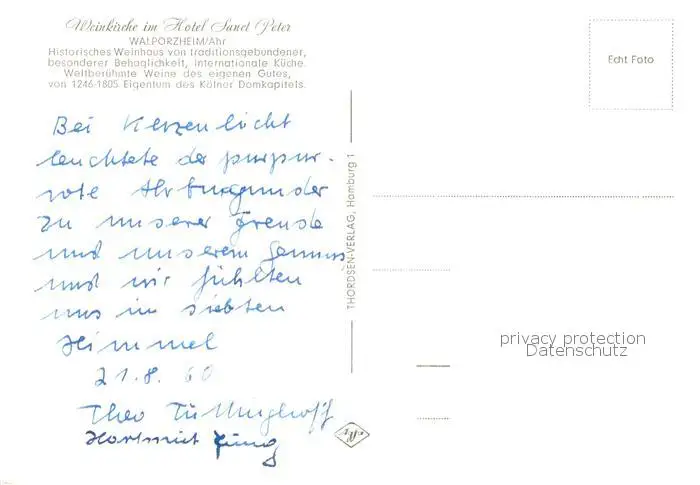 Weinkirche im Hotel Sanct Peter
WALPORZHEIM/Ahr
Historisches Weinhaus von traditionsgebundener,
besonderer Behaglichkeit, internationale Küche.
Weltberühmte Weine des eigenen Gutes,
von 1246-1805 Eigentum des Kölner Domkapitels.
Bei Kerzenlicht
leuchtete der purpur-
rote Ahrburgunder
zu unserer Freude
und unserem Genuss
und wir fühlten
uns im siebten
Himmel
21.8.60
Theo
Hartmut Jung
THORDSEN-VERLAG, Hamburg 1
Echt Foto
privacy protection
Datenschutz